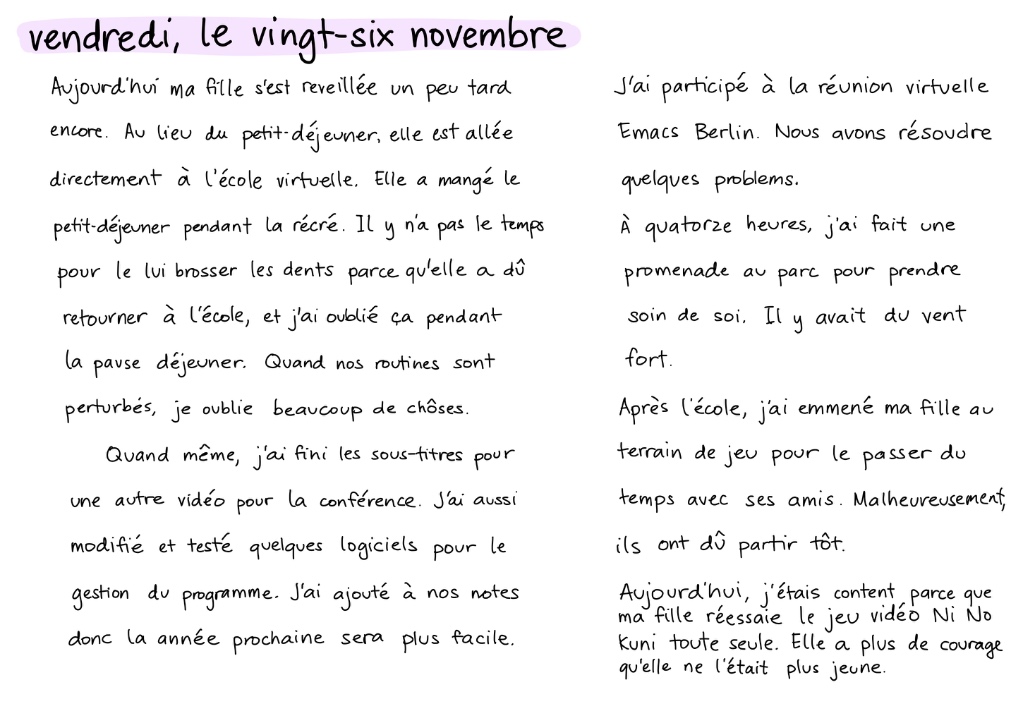 vendredi, le vingt-six novembre
Aujourd'hui ma fille s'est reveillée un peu tard
encore. Au lieu du petit-déjeuner, elle est allée
directement à l'école virtuelle. Elle a mangé le
petit-déjeuner pendant la récré. Il y n'a pas le temps
pour le lui brosser les dents parce qu'elle a dû
retourner à l'école, et j'ai oublié ça pendant
la pause déjeuner. Quand nos routines sont
perturbés, je oublie beaucoup de chôses.
Quand même, j'ai fini les sous-titres pour
une autre vidéo pour la conférence. J'ai aussi
modifié et testé quelques logiciels pour le
gestion du programme. J'ai ajouté à nos notes
donc la année prochaine sera plus facile.
J'ai participé à la réunion virtuelle
Emacs Berlin. Nous avons résoudre
quelques problems.
À quatorze heures, j'ai fait une
promenade au parc pour prendre
soin de soi. Il y avait du vent
fort.
Après l'école, j'ai emmené ma fille au
terrain de jeu pour le passer du
temps avec ses amis. Malheureusement,
ils ont dû partir tôt.
Aujourd'hui, j'étais content parce que
ma fille réessaie le jeu vidéo Ni No
Kuni toute seule. Elle a plus de courage
qu'elle ne l'était plus jeune.